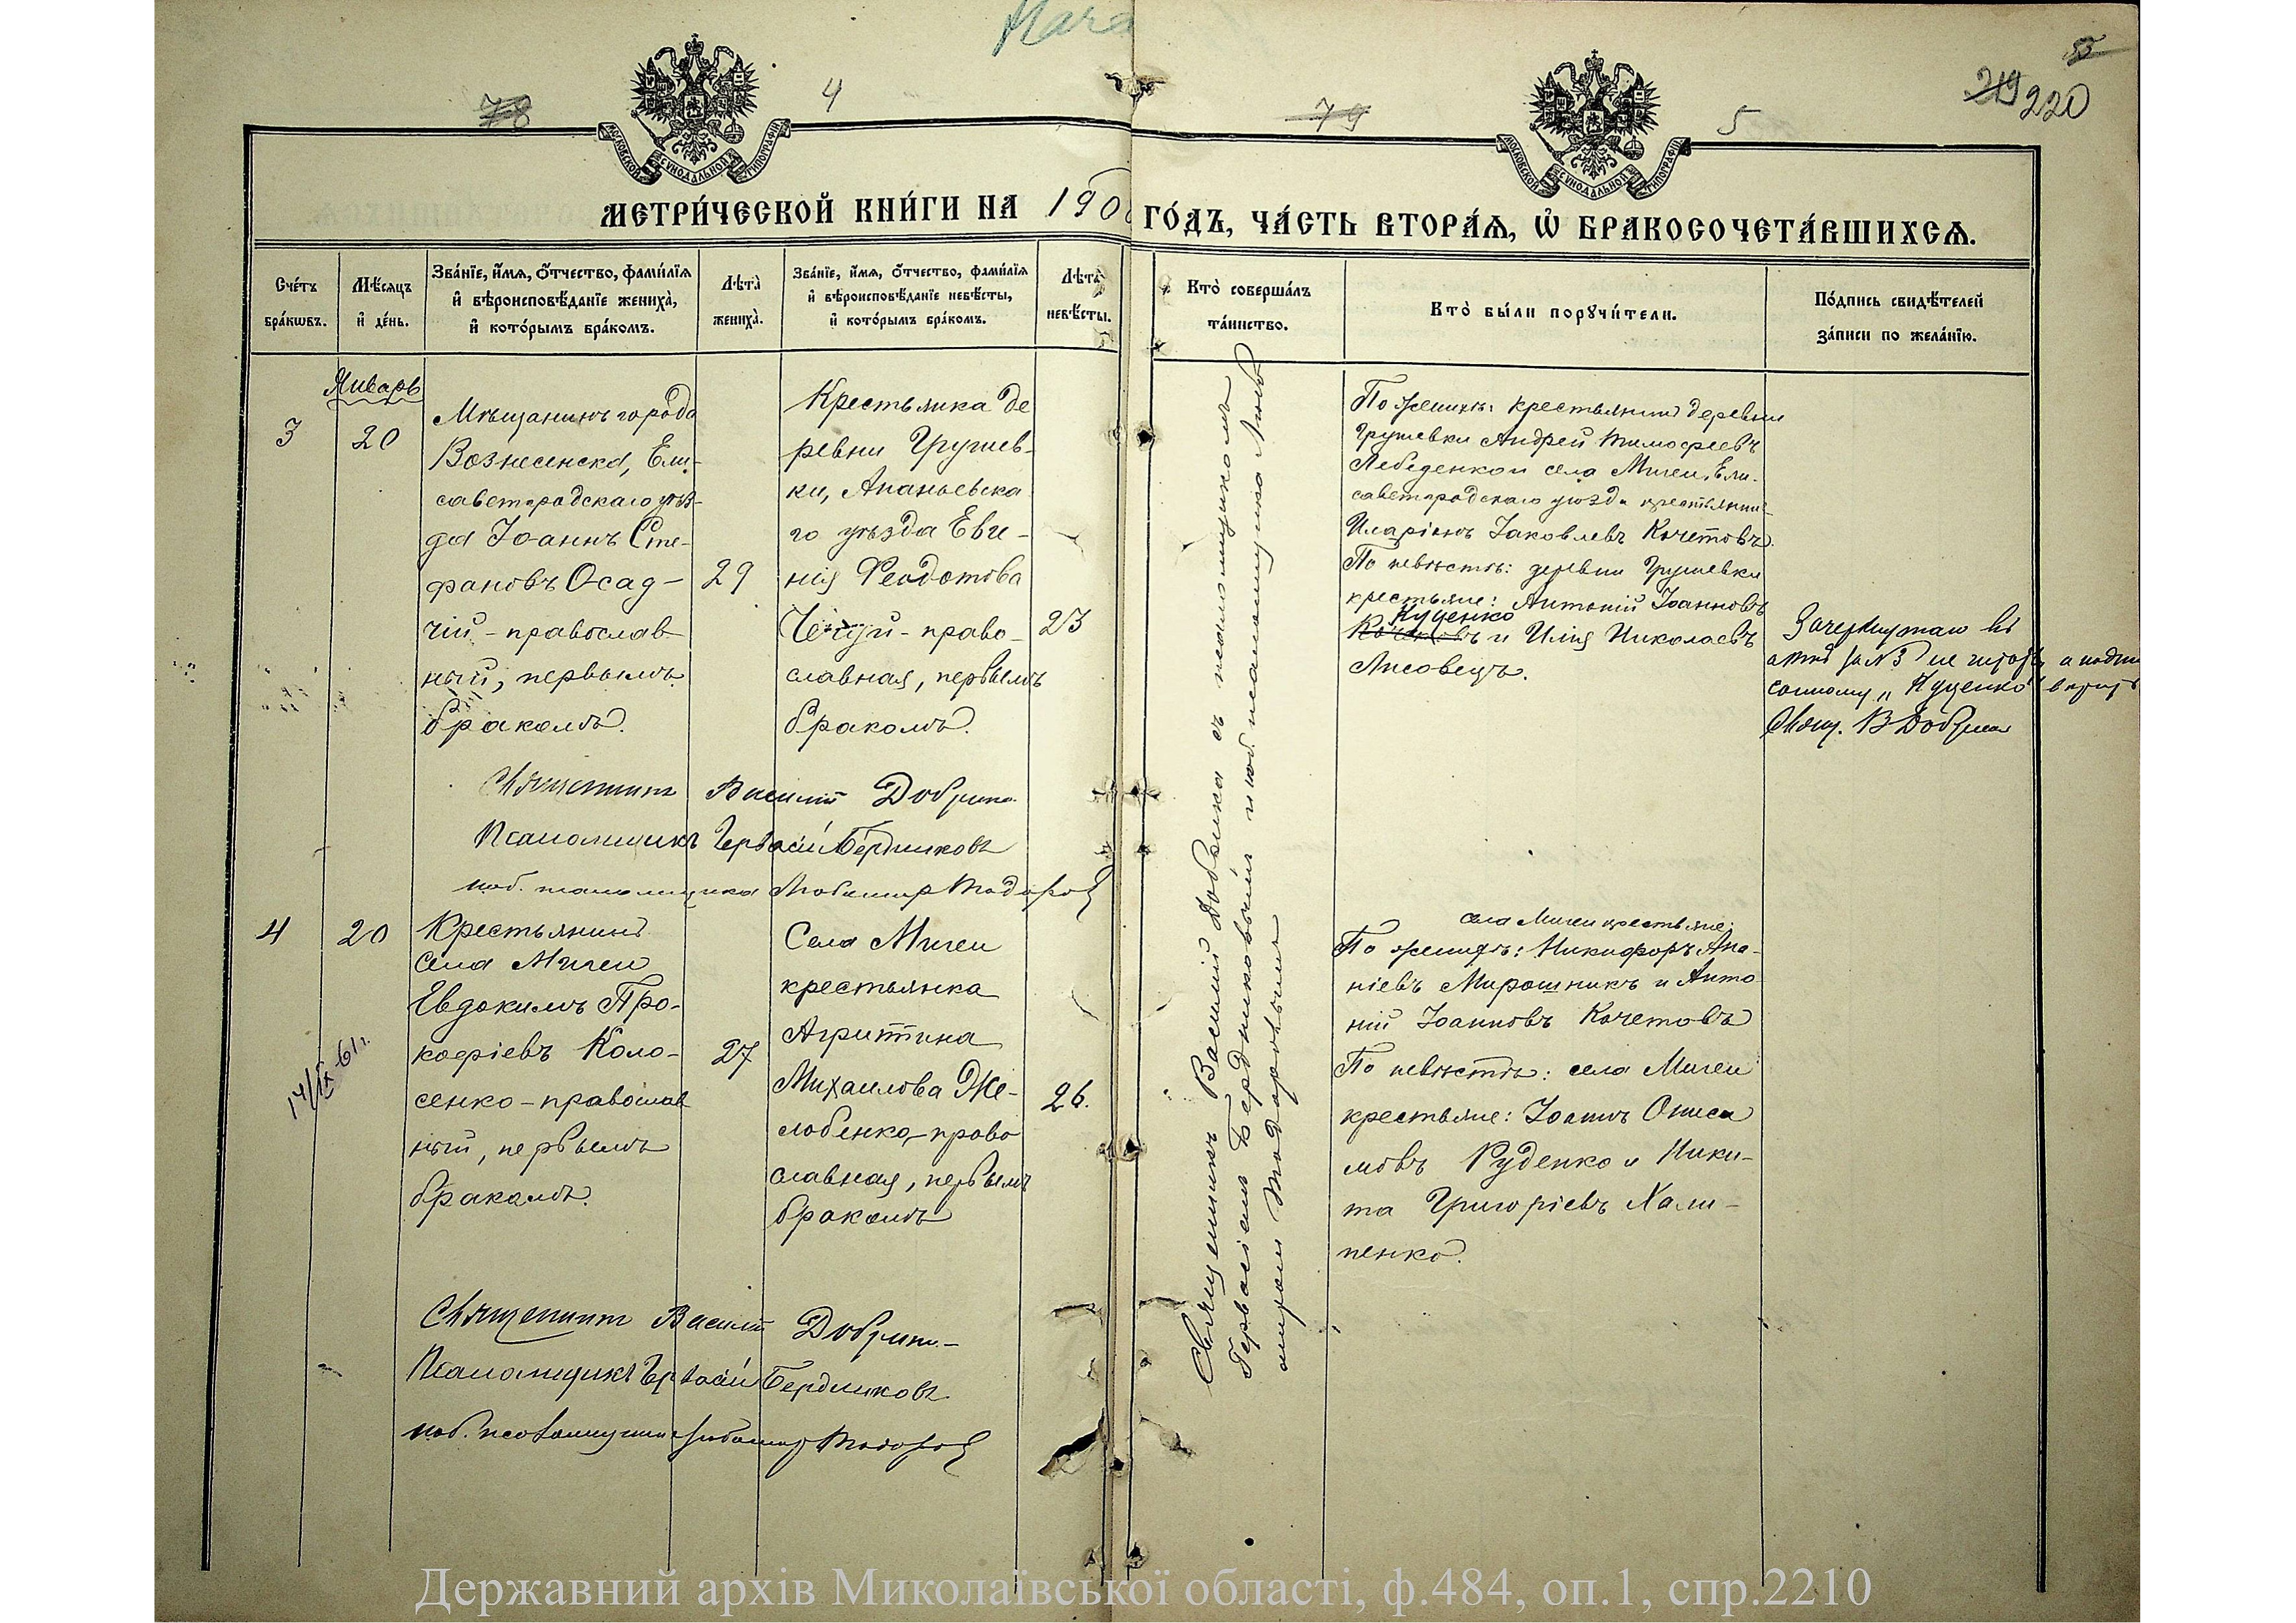 78
4
79
5
219 220
МОСКОВСКОЙ СѴНОДАЛЬНОЙ ТИПОГРАФІИ
МОСКОВСКОЙ СѴНОДАЛЬНОЙ ТИПОГРАФІИ
МЕТРИ́ЧЕСКОЙ КНИ́ГИ НА 190
ГО́ДЪ, ЧА́СТЬ ВТОРА́Ѧ, Ѽ БРАКОСОЧЕТА́ВШИХСѦ.
Сче́тъ
бра́кѡвъ.
Мѣ́сяцъ
и҆ де́нь.
Зва́нїе, и҆́мѧ, о҆́тчество, фами́лїѧ
и҆ вѣроисповѣ́данїе жениха̀,
и҆ кото́рымъ бра́комъ.
Лѣта̀
жениха̀.
Зва́нїе, и҆́мѧ, о҆́тчество, фами́лїѧ
и҆ вѣроисповѣ́данїе невѣ́сты,
и҆ кото́рымъ бра́комъ.
Лѣта̀
невѣ́сты.
Кто̀ соверша́лъ
та́инство.
Кто̀ бы́ли порꙋчи́тели.
По́дпись свидѣ́телей
за́писи по жела́нїю.
Январь
3
20
Мѣщанинъ города
Вознесенска, Ели-
саветградскаго уѣз-
да Іоаннъ Сте-
фановъ Осад-
чій - православ
ный, первымъ
бракомъ.
29
Крестьянка де
ревни Грушев-
ки, Ананьевска
го уѣзда Евге-
нія Феодотова
право-
славная, первымъ
бракомъ.
23
Священникъ Василій Добрыка съ псаломщикомъ
Гервасіемъ Бердниковымъ и и.об. псаломщика Любо
миромъ Тодоровымъ
По женихѣ: крестьянинъ деревни
Грушевки Андрей Тимофеевъ
Лебеденко и села Мигеи, Ели-
саветградскаго уѣзда крестьянинъ
Иларіонъ Іаковлевъ Кочетовъ.
По невѣстѣ: деревни Грушевки
крестьяне: Антоній Іоанновъ
Куценко
и Илія Николаевъ
Лисовецъ.
Зачеркнутаго въ
актѣ за №3 не читать, а надпи
санному „Куценко" вѣрить
Свящ. В Добрыка
Священникъ Василій Добрыка
Псаломщикъ Гервасій Бердниковъ
и.об. псаломщика Любомиръ Тодоровъ
4
20
14/IX-61г.
Крестьянинъ
села Мигеи
Евдокимъ Про-
кофіевъ Коло-
сенко - православ
ный, первымъ
бракомъ.
27
Села Мигеи
крестьянка
Агриппина
Михаилова Же-
лобенко, право
славная, первымъ
бракомъ
26.
села Мигеи крестьяне:
По женихѣ: Никифоръ Ана-
ніевъ Мирошникъ и Анто
ній Іоанновъ Кочетовъ
По невѣстѣ: села Мигеи
крестьяне: Іоаннъ Ониси
мовъ Руденко и Ники-
та Григоріевъ Хали-
пенко.
Священникъ Василій Добрыка
Псаломщикъ Гервасій Бердниковъ
и.об. псаломщика Любомиръ Тодоровъ
Державний архів Миколаївської області, ф.484, оп.1, спр.2210